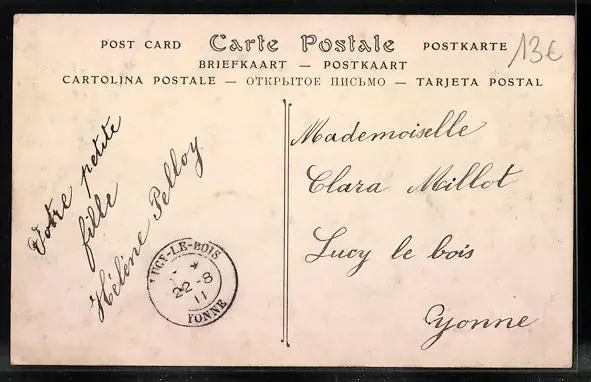 POST CARD Carte Postale POSTKARTE
13€
BRIEFKAART — POSTKAART
CARTOLINA POSTALE — ОТКРЫТОЕ ПИСЬМО — TARJETA POSTAL
Votre petite
fille
Hélène Pelloy
LUCY-LE-BOIS
22-8
11
YONNE
Mademoiselle
Clara Millot
Lucy le bois
Yonne